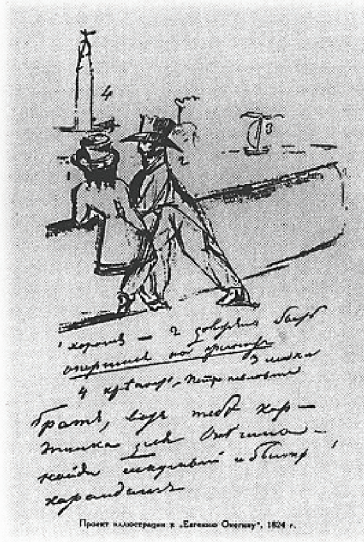 4
3
2
1 хорош — 2 должен быть
опершися на гранит
3 лодка
4 крепость Петропавловская
Братъ, вотъ тебѣ кар—
тинка для Онегина —
найди искусный и быстрый
карандашъ
Проект иллюстрации к „Евгению Онегину“, 1824 г.